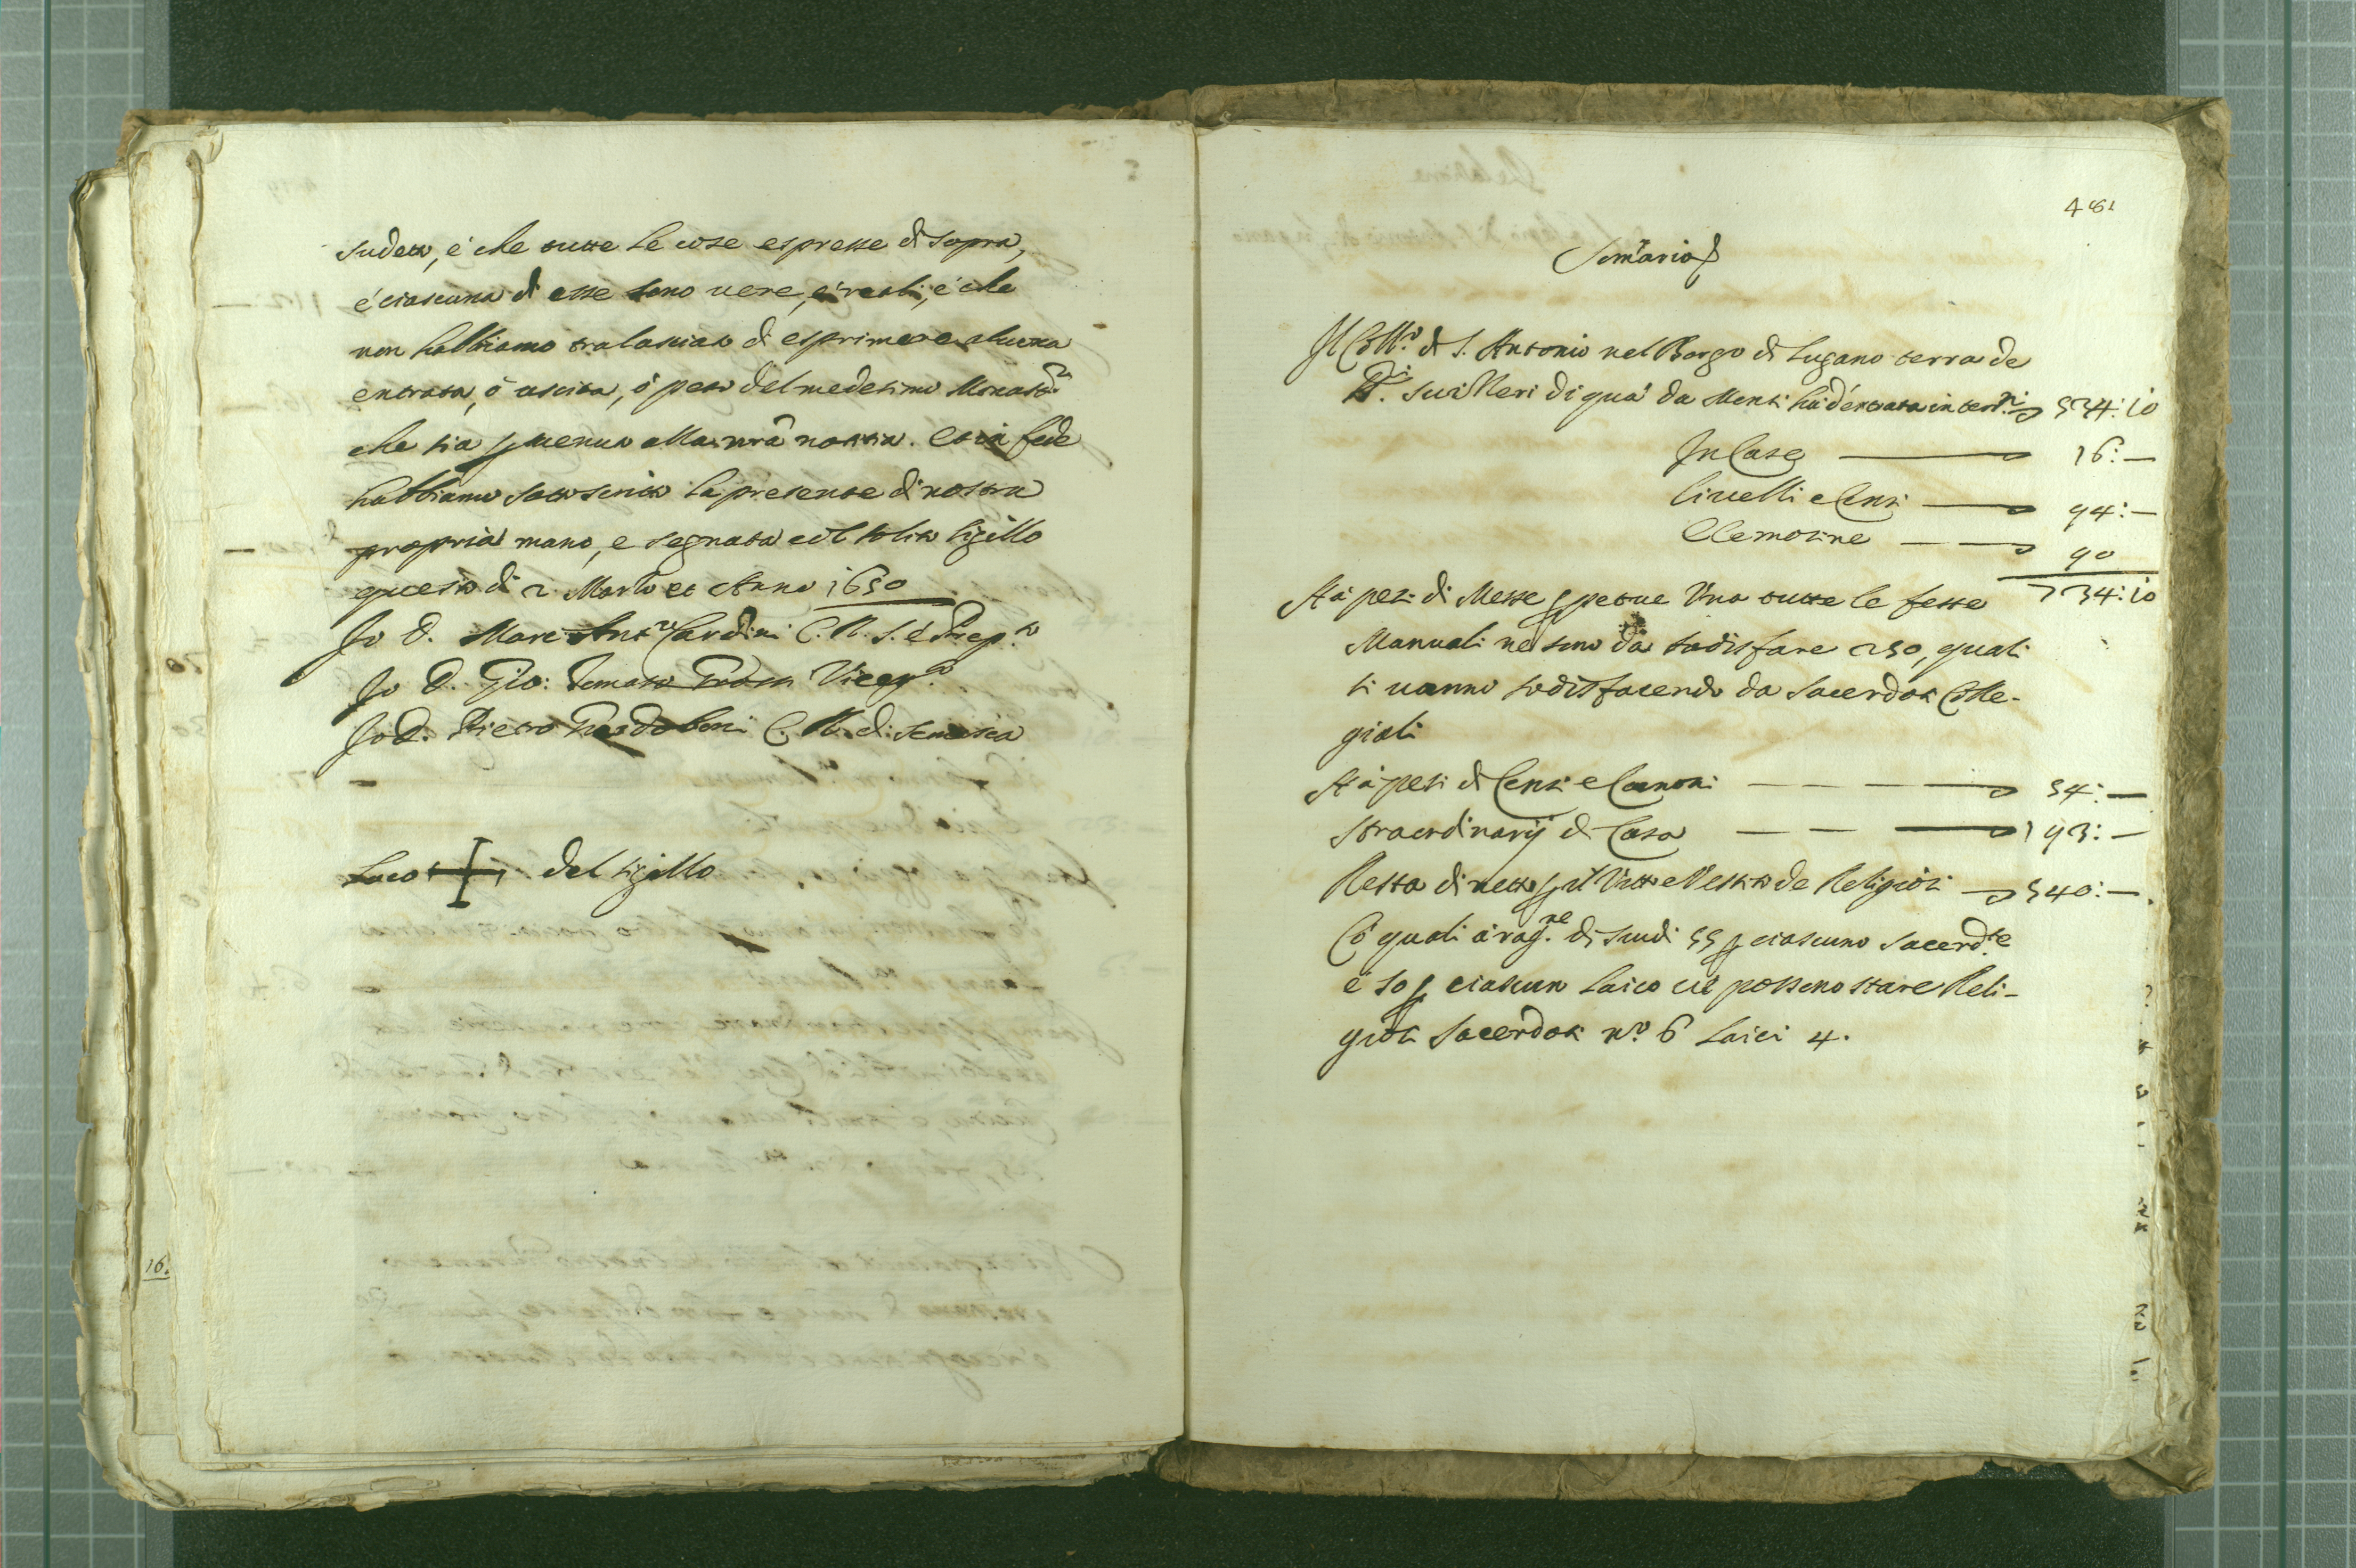 sudetto, é che tutte le cose espresse di sopra,
é ciascuna di esse sono uere, é reali, é che
non habbiamo tralasciato di esprimere alcuna
entrata, ó uscita, ó peso del medesimo Monast.ro
che sia puenuta alla nrã notitia. et in fede
habbiamo sottoscritta la presente di nostra
propria mano, e segnata col solito sigillo
questo dì 2 Marzo et Anno 1650
Io D. Marc Ant.o Cardini C. R. S. é Prep.to
Io D. Gio: Tomaso Vicep.to
Io D. Pietro C. R. di Somasca
Loco + del sigillo
16.
481
Somario
Il Coll.o di S. Antonio nel Borgo di Lugano terra de
SS.ri Suizzeri di quá da Monti há d'entrata in terr.ni 534:10
In Case 16:—
Liuelli e Censi 94:—
Elemosine 90
734:10
Há pesi di Messe ppetue Una tutte le feste
Manuali ne sono da sodisfare 250, quali
si uanno sodisfacendo da Sacerdoti Colle-
giali
Há pesi di Censi e Canoni 54:—
Straordinarij di Casa 193:—
Resta di netto p il Vitto e Vestito de Religiosi 540:—.
Cõ quali á rag.ne di scudi 55 p ciascuno Sacerd.te
é 50 p ciascun Laico ui possono stare Reli-
giosi Sacerdoti n.o 6 Laici 4.